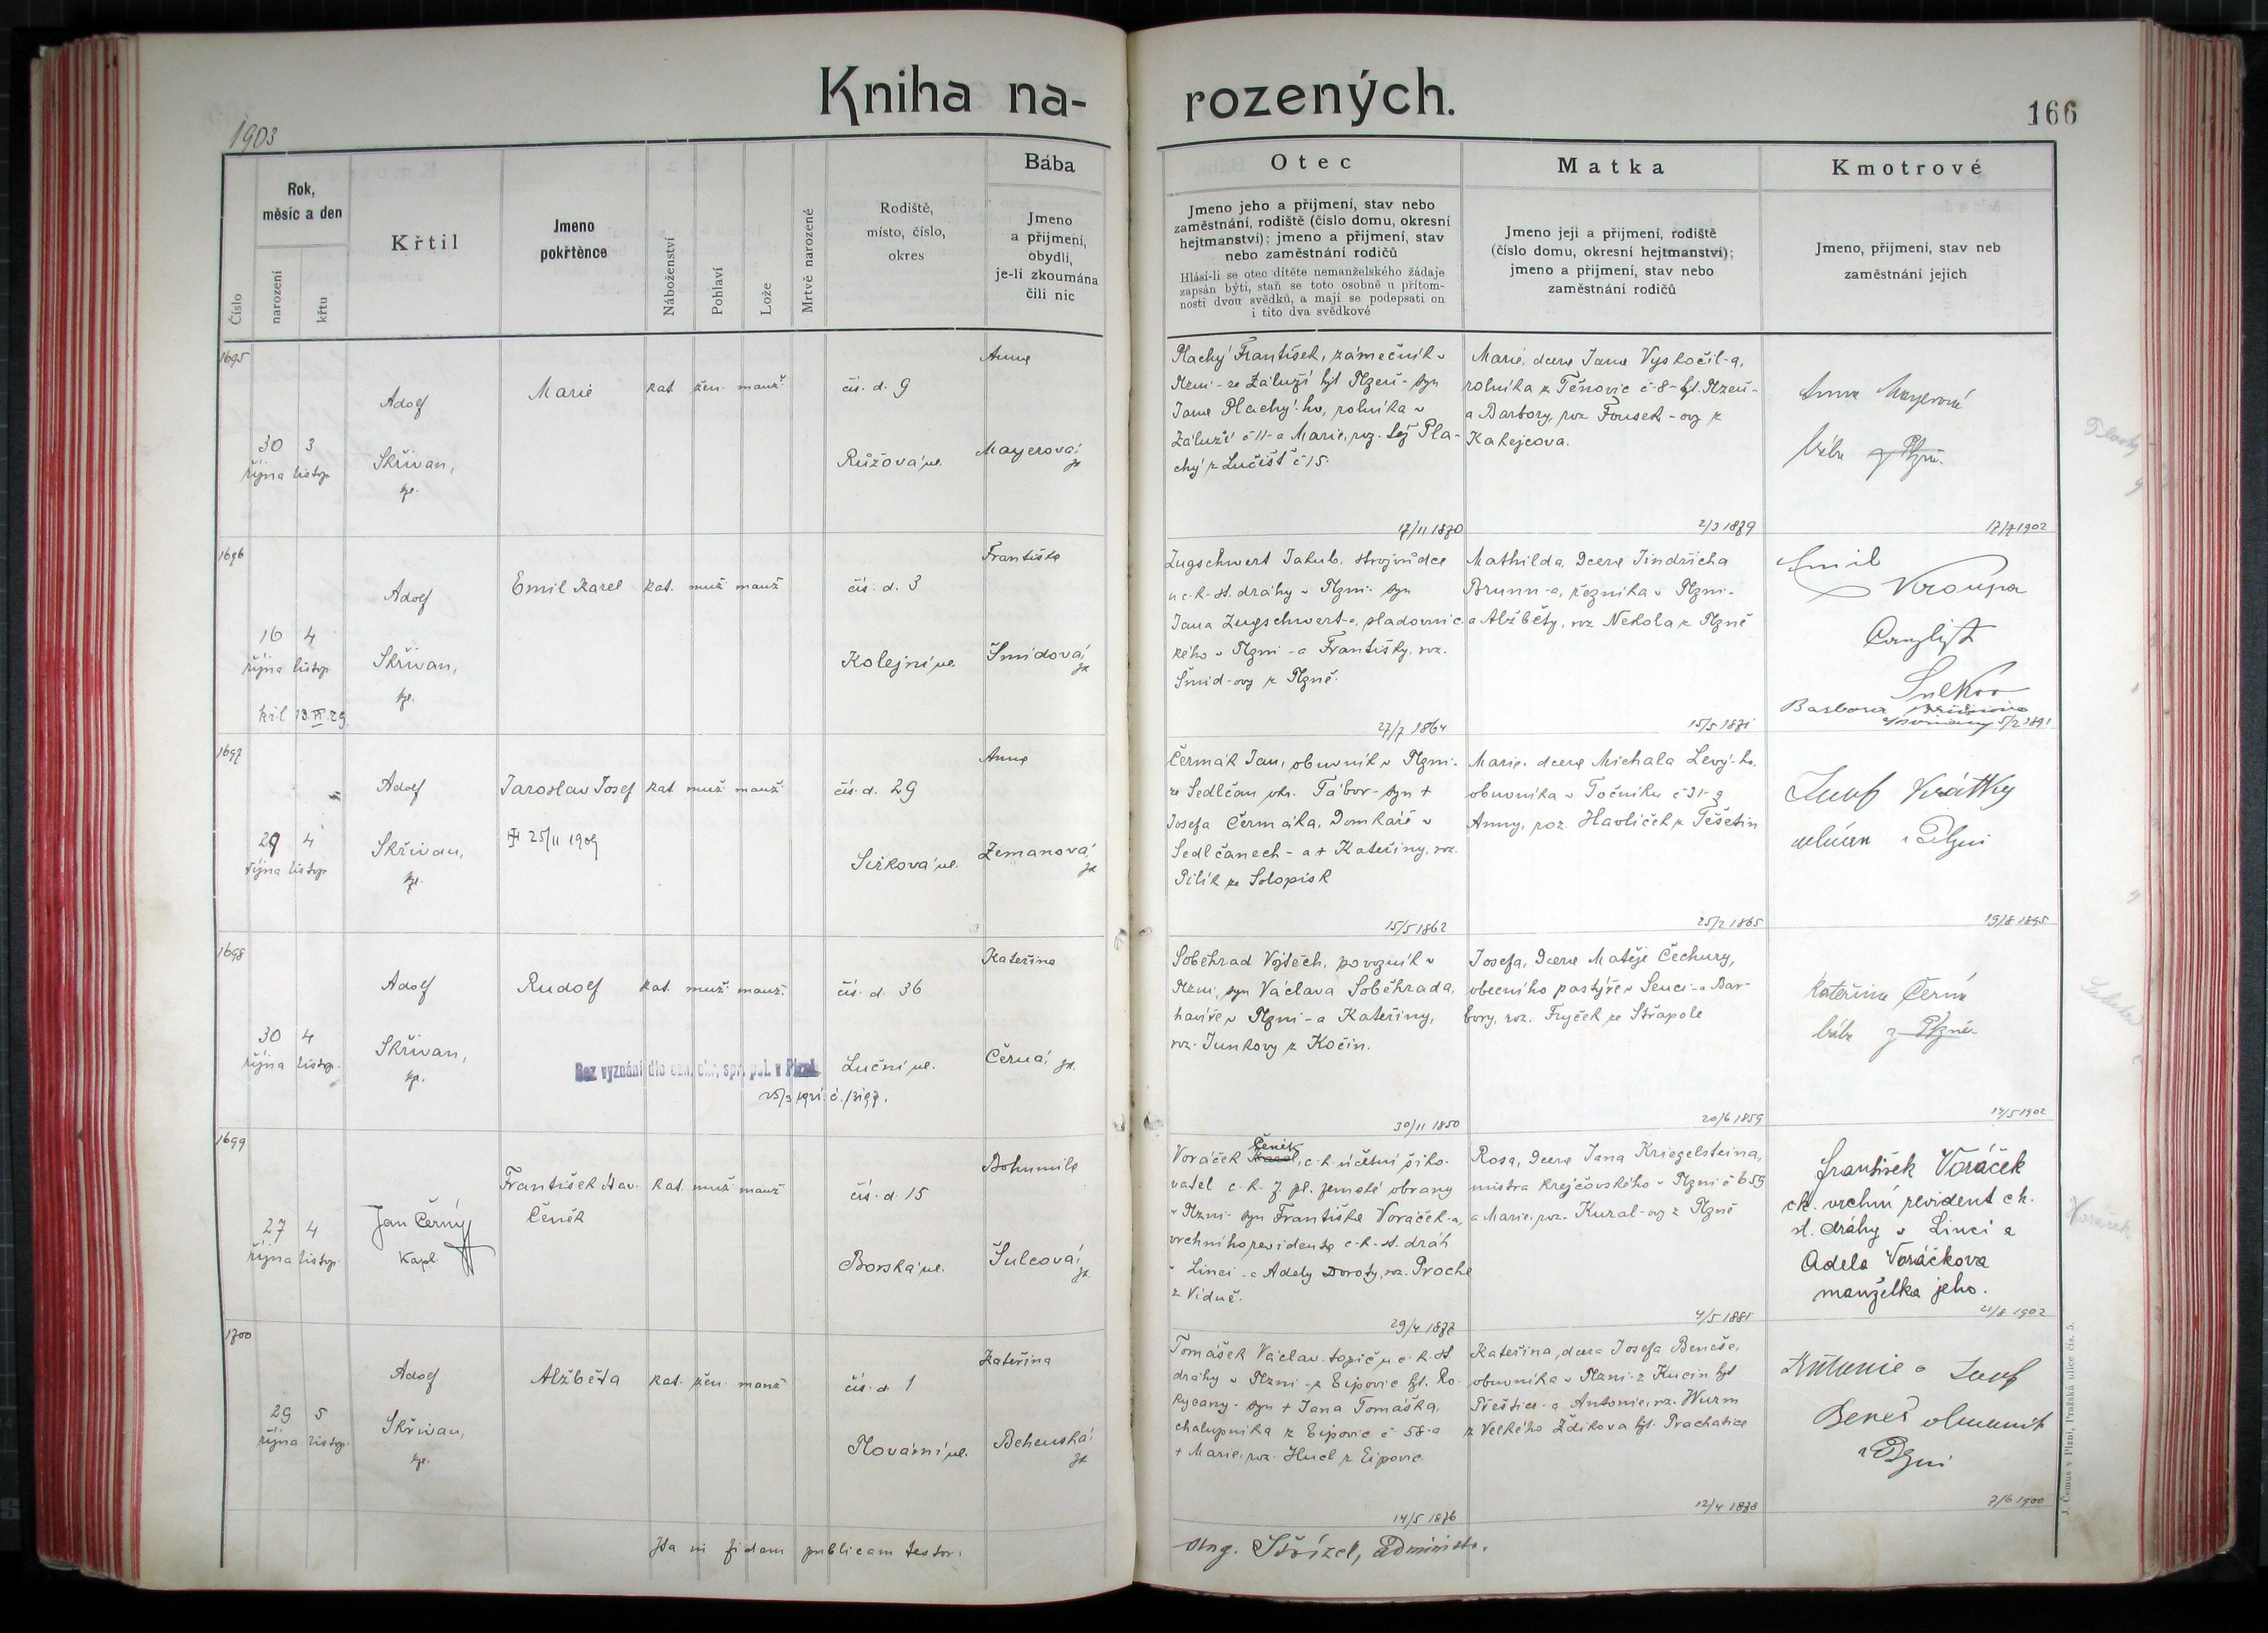 Kniha na-
rozených.
166
1903
Číslo
Rok,
měsíc a den
narození
křtu
Křtil
Jmeno
pokřtěnce
Náboženství
Pohlaví
Lože
Mrtvě narozené
Rodiště,
místo, číslo,
okres
Bába
Jmeno
a příjmení,
obydlí,
je-li zkoumána
čili nic
Otec
Jmeno jeho a příjmení, stav nebo
zaměstnání, rodiště (číslo domu, okresní
hejtmanství); jmeno a příjmení, stav
nebo zaměstnání rodičů
Hlásí-li se otec dítěte nemanželského žádaje
zapsán býti, staň se toto osobně u přítom-
nosti dvou svědků, a mají se podepsati on
i tito dva svědkové
Matka
Jmeno její a příjmení, rodiště
(číslo domu, okresní hejtmanství);
jmeno a příjmení, stav nebo
zaměstnání rodičů
Kmotrové
Jmeno, příjmení, stav neb
zaměstnání jejich
1695
30 3
října listop
Adolf
Skřivan,
kp.
Marie
kat. žen. manž.
čís. d. 9
Růžová ul.
Anna
Mayerová,
zk
Plachý František, zámečník v
Plzni - ze Záluží hjt Plzeň - syn
Jana Plachý-ho, rolníka v
Záluží č 11 - a Marie, roz. též Pla-
chý z Lučišť č 15.
17/11 1870
Marie, dcera Jana Vyskočil-a,
rolníka z Těnovic č - 8 - hjt. Plzeň -
a Barbory, roz Fousek - ovy z
Kakejcova.
2/3 1879
Anna Mayerová
bába z Plzně.
17/7 1902
1696
16 4
října listop
křil 13.VI.29.
Adolf
Skřivan,
kp.
Emil Karel
kat. muž manž
čís. d. 3
Kolejní ul.
Františka
Šmídová,
zk
Zugschwert Jakub, strojvůdce
u c. k. st. dráhy v Plzni - syn
Jana Zugschwert-a, sladovnic-
kého v Plzni - a Františky, roz.
Šmíd-ovy z Plzně.
27/7 1864
Mathilda, dcera Jindřicha
Brunn-a, řezníka v Plzni -
a Alžběty, roz Nekola z Plzně
15/5 1871
Emil
Kroupa
Barbora
5/2 1891
1697
29 4
října listop
Adolf
Skřivan,
kp.
Jaroslav Josef
25/11 1909
kat muž manž
čís. d. 29
Žižkova ul.
Anna
Zemanová,
zk
Čermák Jan, obuvník v Plzni -
ze Sedlčan okr. Tábor - syn +
Josefa Čermáka, domkáře v
Sedlčanech - a + Kateřiny, roz.
Pilík ze Solopisk
15/5 1862
Marie, dcera Michala Levý-ho,
obuvníka v Točníku č 31 - a
Anny, roz. Havlíček z Těšetin
25/2 1865
Josef Krátký
v Plzni
19/8 1895
1698
30 4
října listop.
Adolf
Skřivan,
kp.
Rudolf
kat. muž. manž.
Bez vyznání dle ozn. okr. spr. pol. v Plzni
čís. d. 36
Luční ul.
Kateřina
Černá, zk.
Soběhrad Vojtěch, povozník v
Plzni, syn Václava Soběhrada,
havíře v Plzni - a Kateřiny,
roz. Junkovy z Kočin.
30/11 1850
Josefa, dcera Matěje Čechury,
obecního pastýře v Senci - a Bar-
bory, roz. Fryček ze Střapole
20/6 1859
Kateřina Černá
bába z Plzně
14/5 1902
1699
27 4
října listop.
Jan Černý
kapl.
František Stav.
Čeněk
kat. muž manž
čís. d. 15
Borská ul.
Bohumila
Šulcová,
zk.
Voráček Čeněk, c. k. účetní šiko-
vatel c. k. 7 pl. zemské obrany
v Plzni - syn Františka Voráček-a,
vrchního revidenta c. k. st. dráh
v Linci - a Adely Doroty, roz. Proche
z Vídně.
29/4 1877
Rosa, dcera Jana Kriegelsteina,
mistra krejčovského v Plzni č 659
a Marie, roz. Kural-ovy z Plzně
4/5 1881
František Voráček
ck. vrchní revident ck.
st. dráhy v Linci a
Adela Voráčkova
manželka jeho.
21/8 1902
Voráček
1700
29 5
října listop.
Adolf
Skřivan,
kp.
Alžběta
kat. žen. manž
čís. d. 1
Plovární ul.
Kateřina
Behenská,
zk
Tomášek Václav, topič u c. k. st.
dráhy v Plzni - z Ejpovic hjt. Ro-
kycany - syn + Jana Tomáška,
chalupníka z Ejpovic č 58 - a
+ Marie, roz. Hucl z Ejpovic
14/5 1876
Kateřina, dcera Josefa Beneše,
obuvníka v Plzni - z Kucin hjt
Přeštice - a Antonie, roz. Wurm
z Velkého Ždíkova hjt. Prachatice
12/4 1878
Antonie a Josef
Beneš obuvník
v Plzni
7/6 1900
Ita in fidem publicam testor:
Aug. Střízek, administr.
J. Čemus v Plzni, Pražská ulice čís. 5.